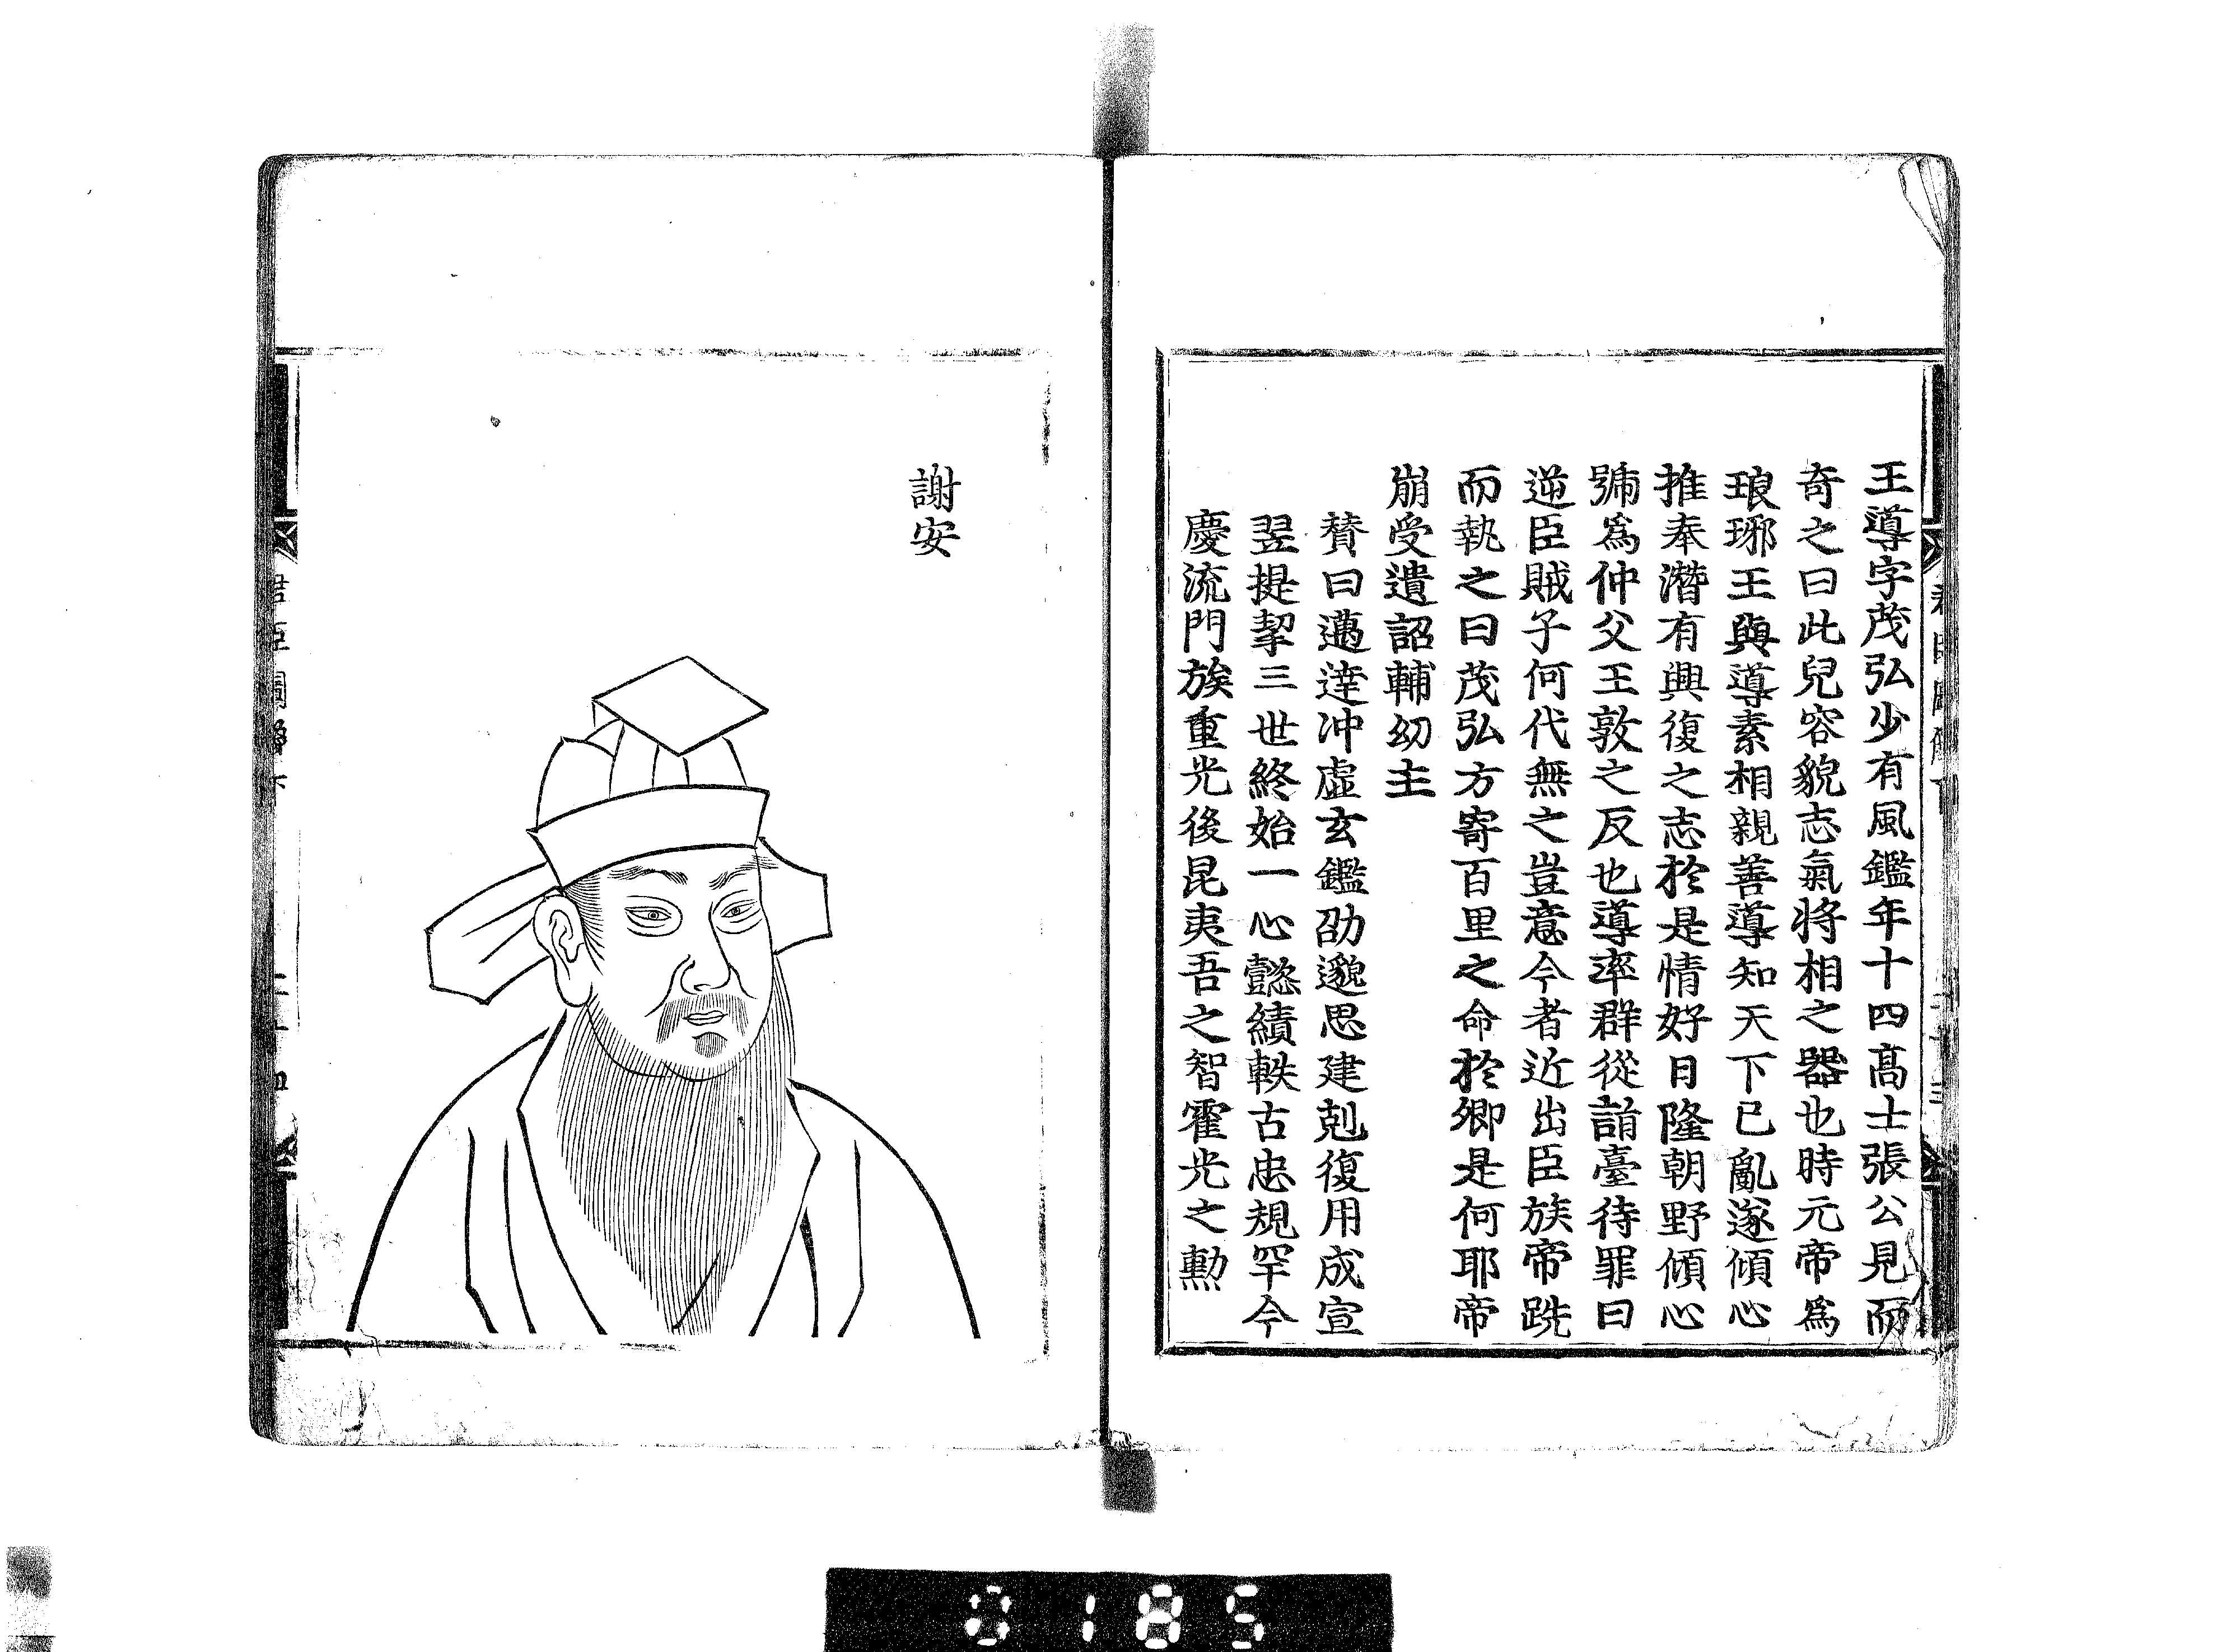 王導字茂弘少有風鑑年十四髙士張公見而
奇之曰此兒容貌志氣將相之器也時元帝爲
琅琊王與導素相親善導知天下已亂遂傾心
推奉潛有興復之志於是情好日隆朝野傾心
號爲仲父王敦之反也導率群從詣臺待罪曰
逆臣賊子何代無之豈意今者近出臣族帝跣
而執之曰茂弘方寄百里之命於卿是何耶帝
崩受遺詔輔幼主
賛曰邁達冲虛玄鑑劭邈思建剋復用成宣
翌提挈三世終始一心懿績軼古忠規罕今
慶流門族重光後昆夷吾之智霍光之勲
謝安
君臣圖 下
二十四
0185